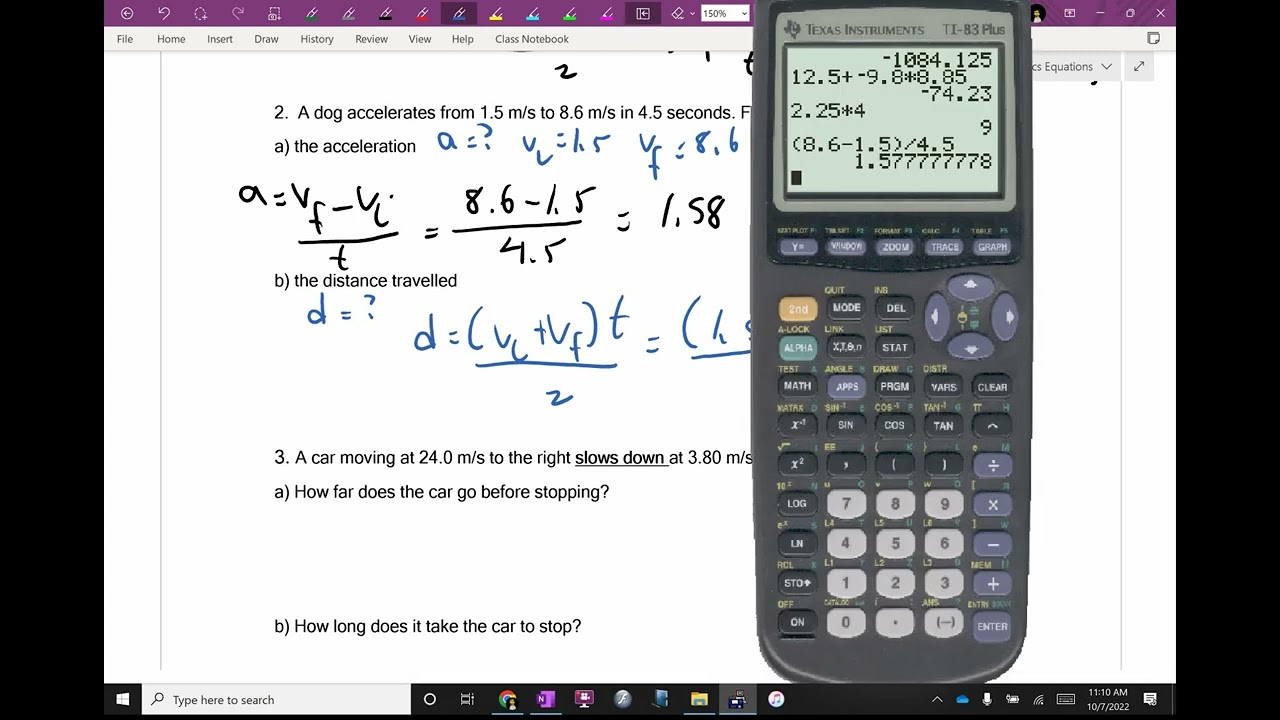 150%
File Home Insert Draw History Review View Help Class Notebook
cs Equations
2
2. A dog accelerates from 1.5 m/s to 8.6 m/s in 4.5 seconds. F
a) the acceleration a=? vi=1.5 vf=8.6
a=vf-vi = 8.6-1.5 = 1.58
t 4.5
b) the distance travelled
d=?
d=(vi+vf)t = (1.5
2
3. A car moving at 24.0 m/s to the right slows down at 3.80 m/s
a) How far does the car go before stopping?
b) How long does it take the car to stop?
TEXAS INSTRUMENTS TI-83 Plus
-1084.125
12.5+-9.8*8.85
-74.23
2.25*4
9
(8.6-1.5)/4.5
1.577777778
STAT PLOT F1 TBLSET F2 FORMAT F3 CALC F4 TABLE F5
Y= WINDOW ZOOM TRACE GRAPH
QUIT INS
2nd MODE DEL
A-LOCK LINK LIST
ALPHA X,T,θ,n STAT
TEST A ANGLE B DRAW C DISTR
MATH APPS PRGM VARS CLEAR
MATRX D SIN⁻¹ E COS⁻¹ F TAN⁻¹ G π H
x⁻¹ SIN COS TAN ^
√ I EE J { K } L e M
x² , ( ) ÷
10ˣ N u O v P w Q [ R
LOG 7 8 9 ×
eˣ S L4 T L5 U L6 V ] W
LN 4 5 6 −
RCL X L1 Y L2 Z L3 θ MEM "
STO 1 2 3 +
OFF CATALOG i : ANS ? ENTRY SOLVE
ON 0 . (−) ENTER
Type here to search
11:10 AM
10/7/2022